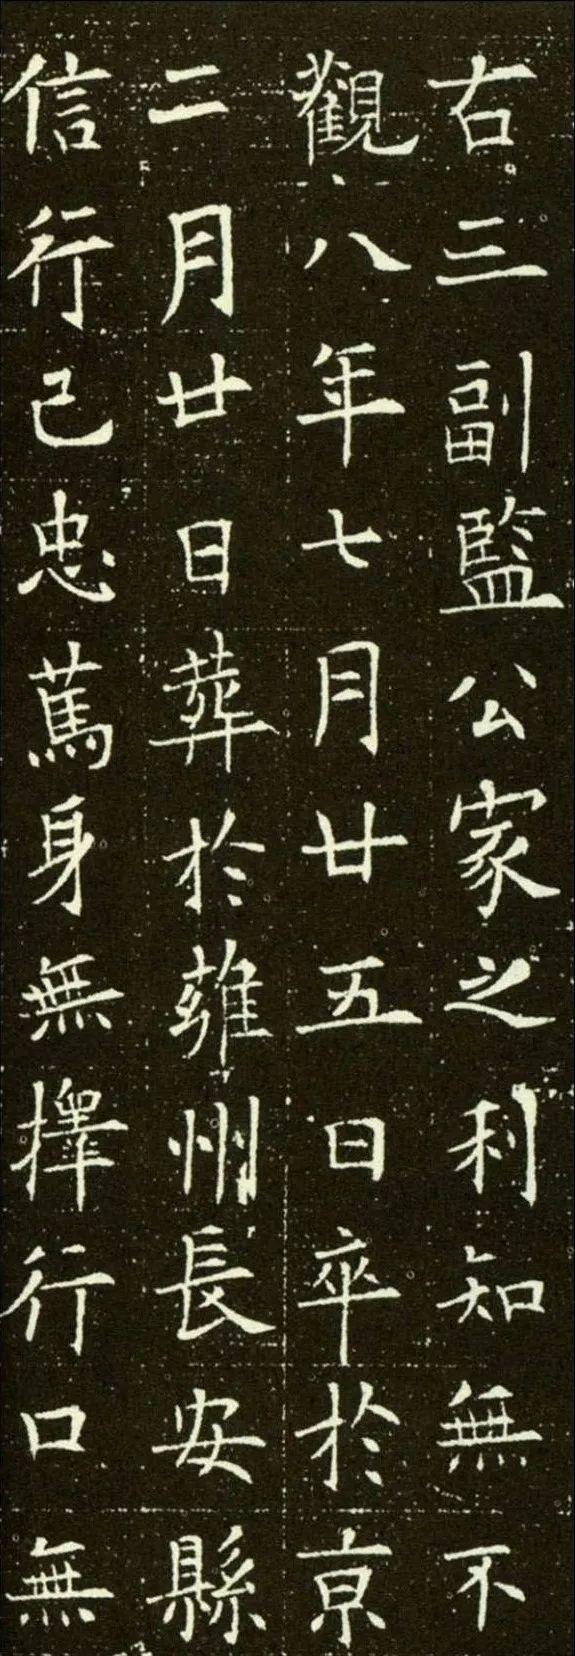 右三副監公家之利知無不
觀八年七月廿五日卒於京
二月廿日葬於雍州長安縣
信行己忠篤身無擇行口無